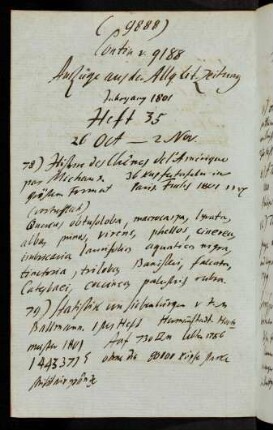 (9888)
Contin v. 9188
Auszüge aus der Allg Lit Zeitung
Jahrgang 1801
Heft 35
26 Oct — 2 Nov.
78) Histoire des Chênes de l'Amerique
par Michaux 36 Kupfertafeln in
größtem Format Paris 1801
Quercus obtusiloba, macrocarpa, lyrata,
alba, prinus, virens, phellos, cinerea,
imbricaria laurifolia aquatica nigra,
tinctoria, triloba, Banisteri, falcata,
Catesbaei, coccinea palustris rubra.
79) Statistik von Siebenbürgen v
Ballmann. 1stes Heft Hermannstadt
1801 Auf 730 □m lebten 1786
1443371 ohne die 80000 Köpfe starke